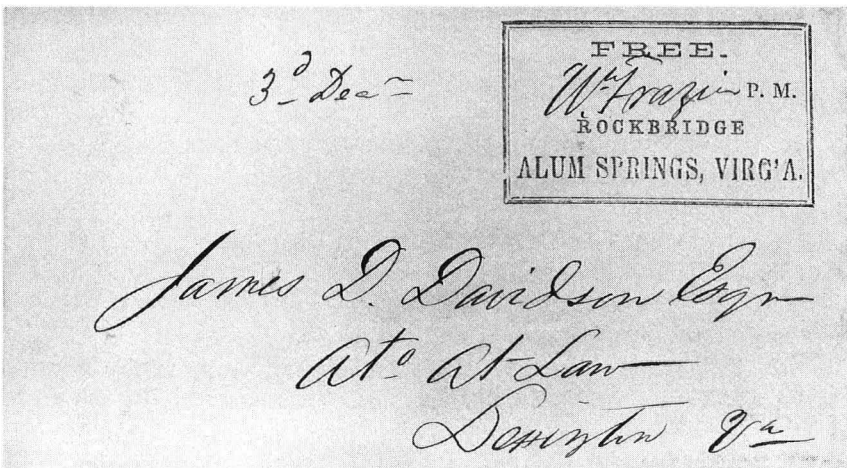 3d Decr
FREE.
Wm Frazier P. M.
ROCKBRIDGE
ALUM SPRINGS, VIRG'A.
James D. Davidson Esqr
Ato At Law
Lexington Va